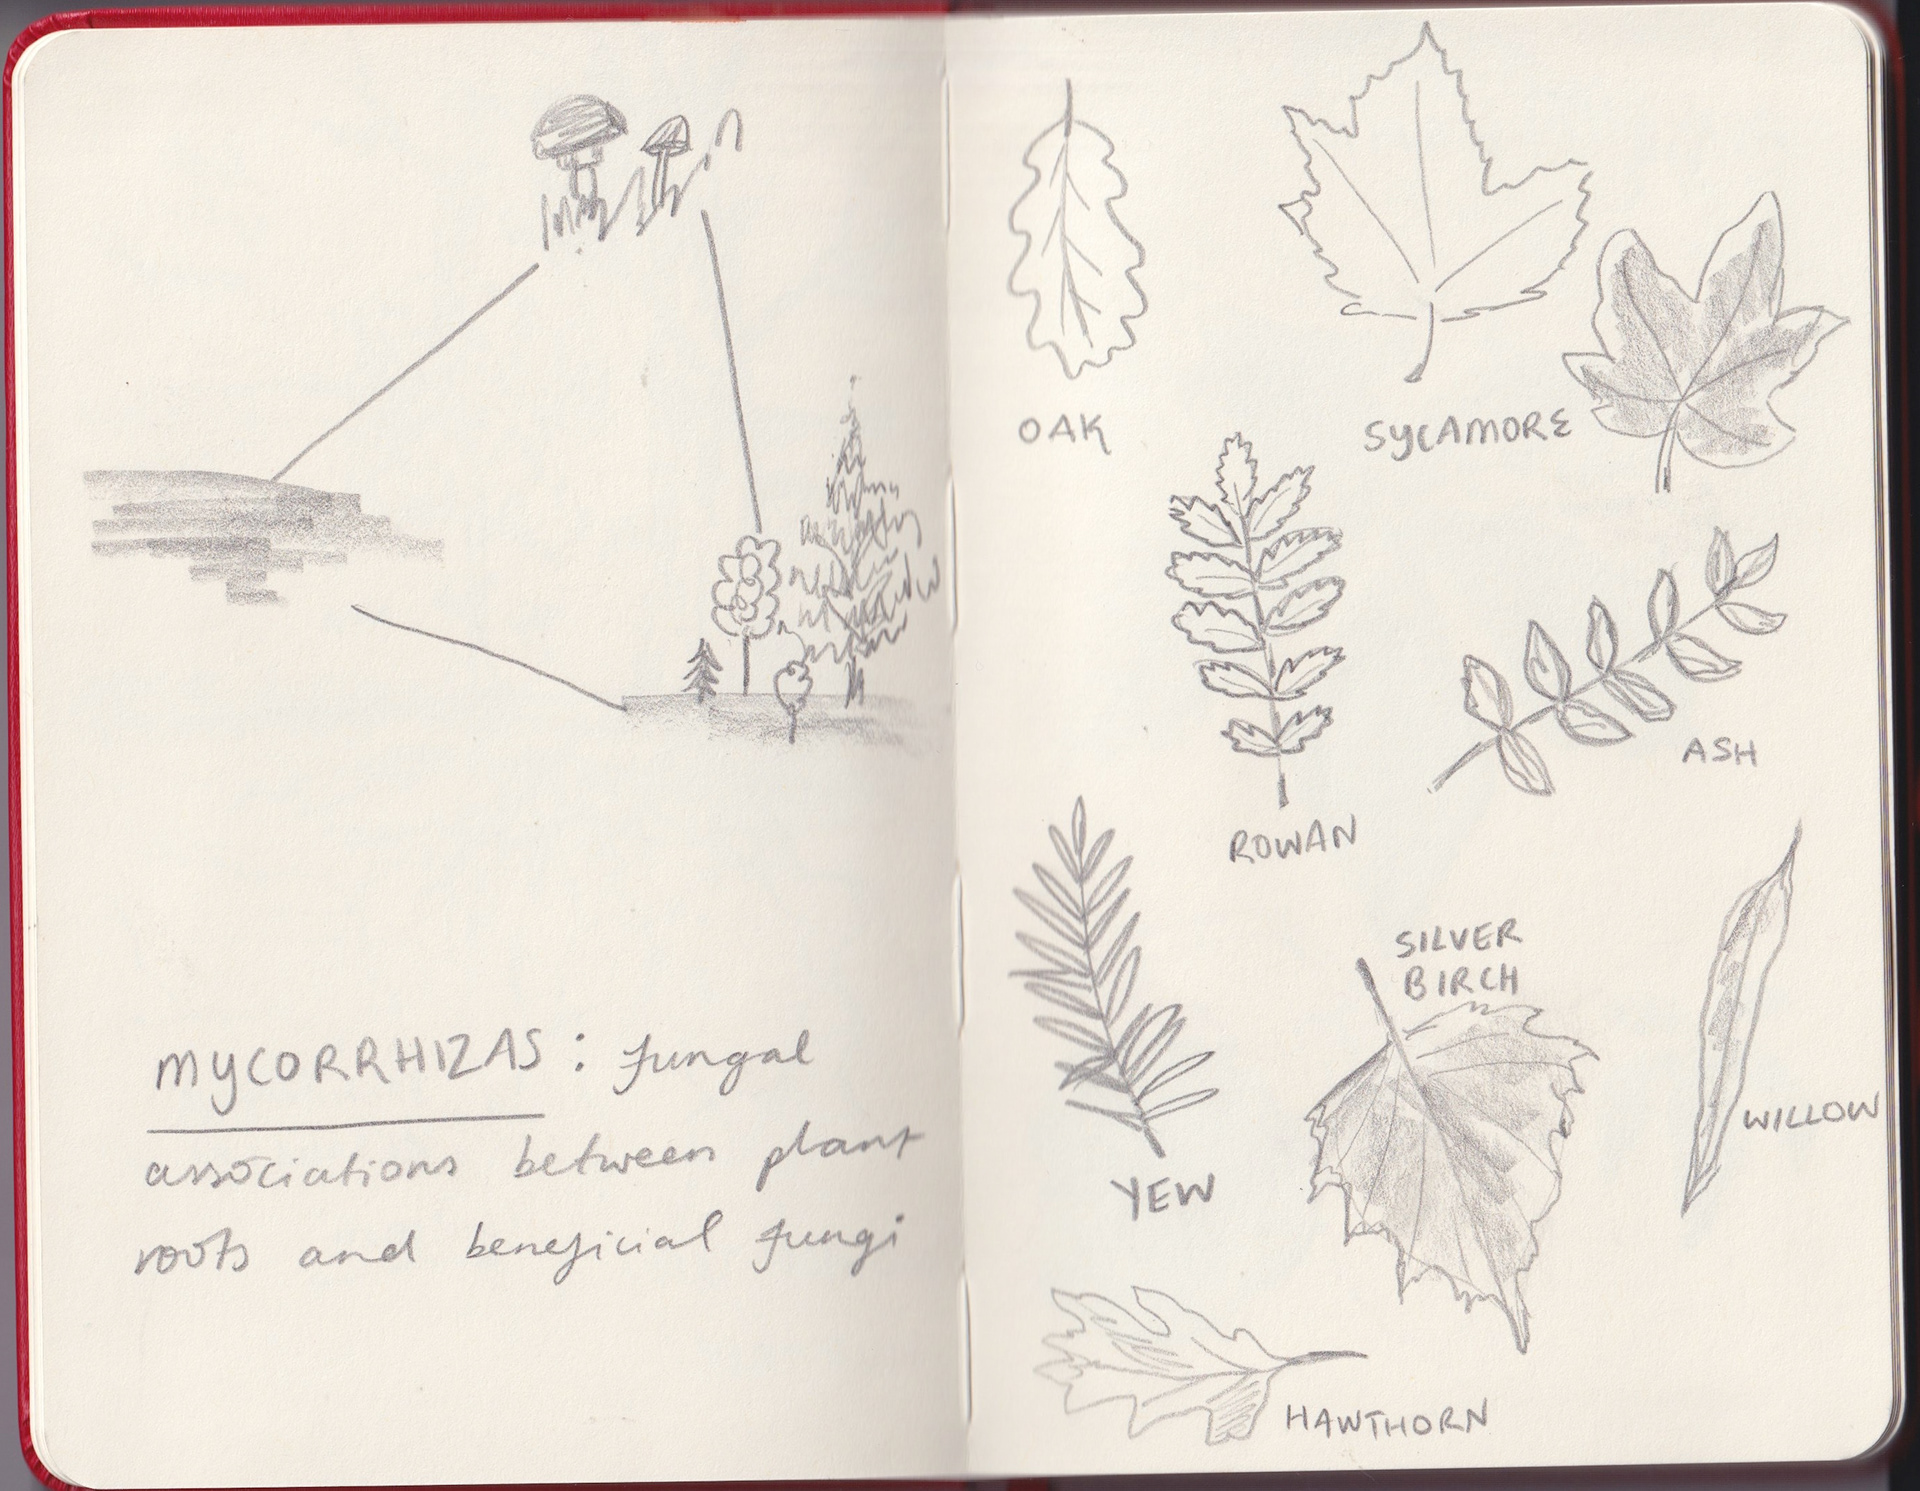 MYCORRHIZAS: fungal
associations between plant
roots and beneficial fungi
OAK
SYCAMORE
ROWAN
ASH
YEW
SILVER
BIRCH
WILLOW
HAWTHORN